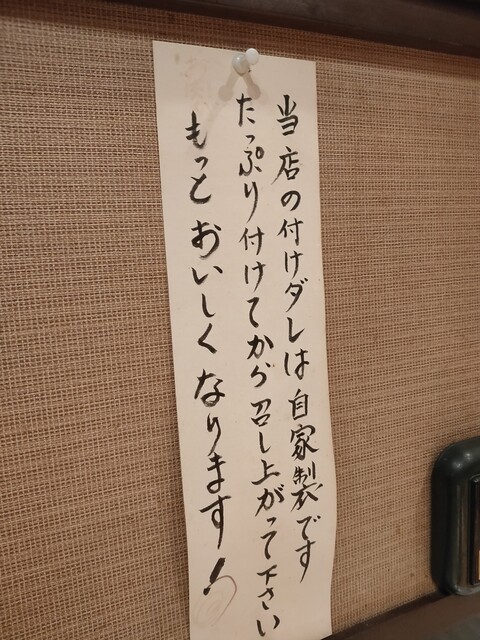 当店の付けダレは自家製です
たっぷり付けてから召し上がって下さい
もっとおいしくなります!